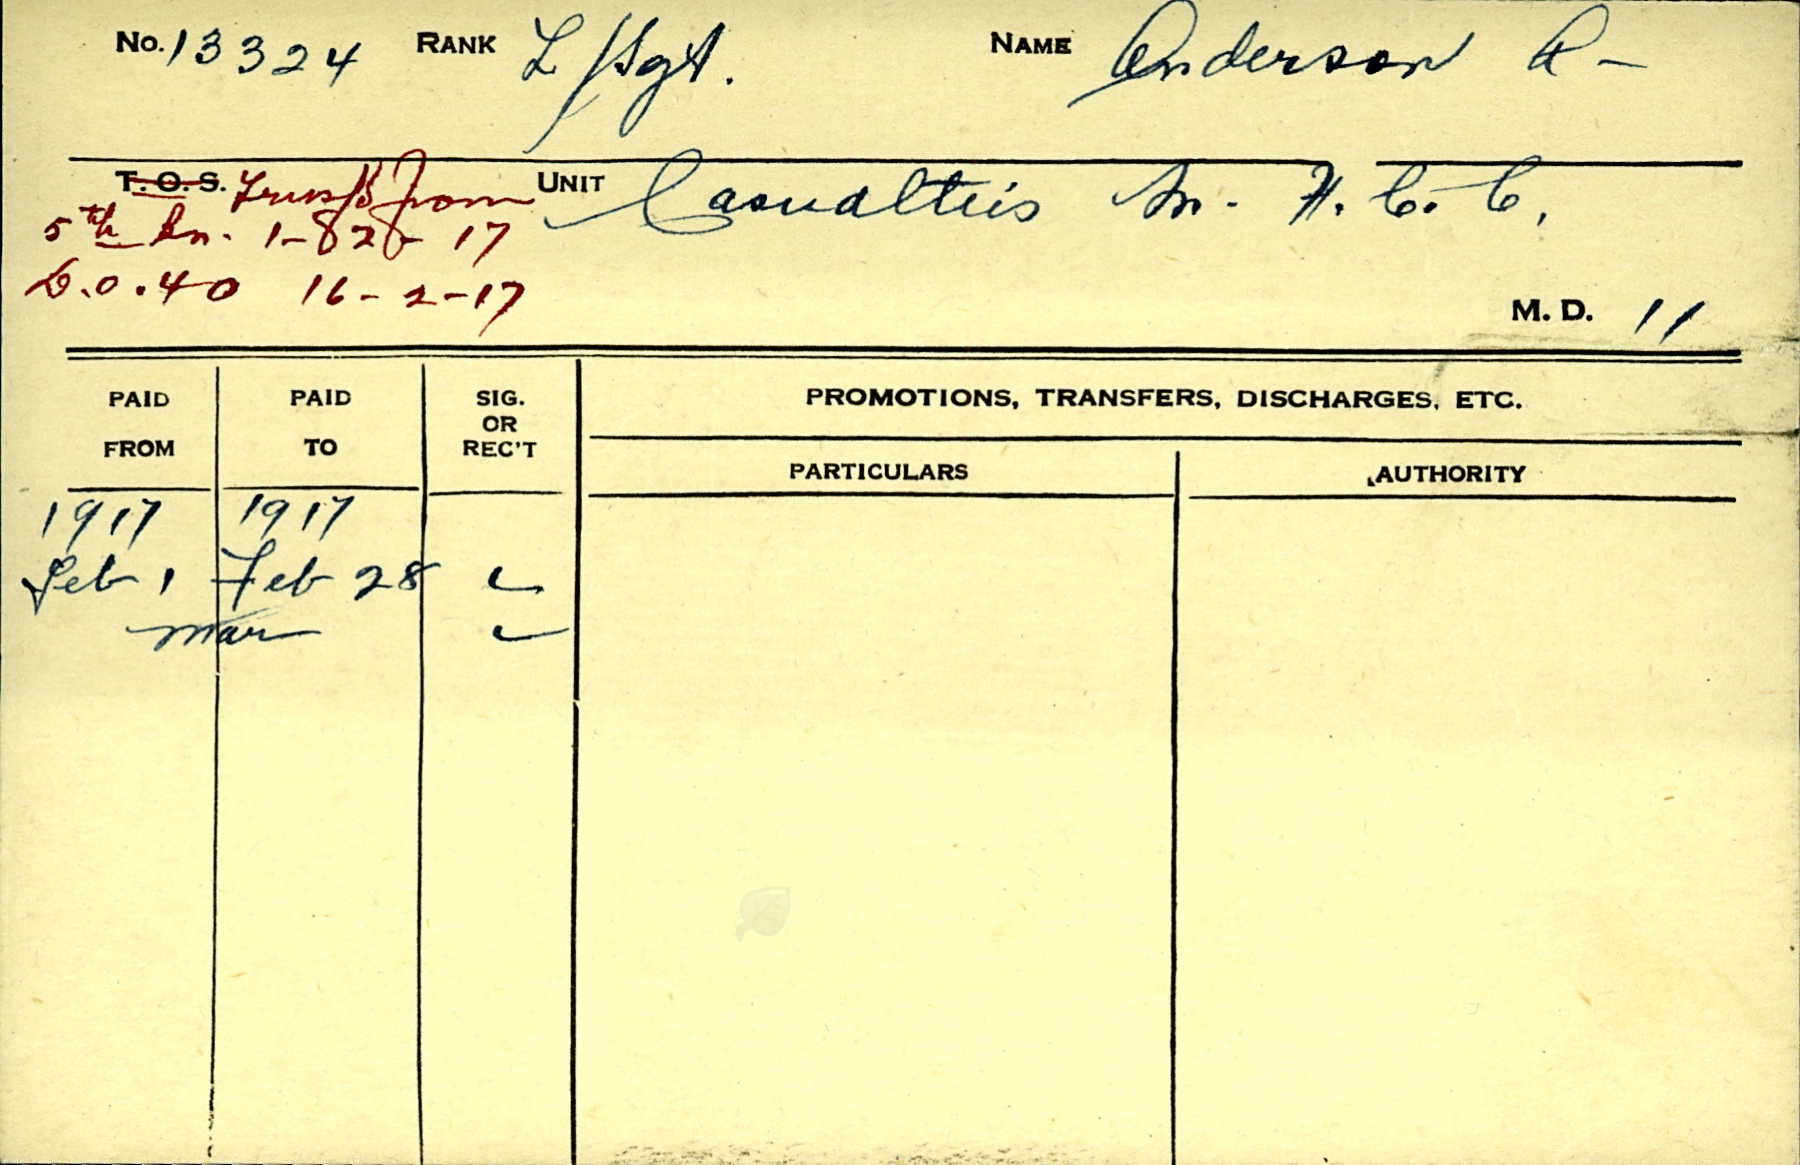 No. 13324 RANK L/Sgt. NAME Anderson A -
T.O.S. Transf from UNIT Casualties M. H. C. C.
5th Bn. 1-2-17
D.O. 40 16-2-17
M. D. 11
PAID FROM PAID TO SIG. OR REC'T PROMOTIONS, TRANSFERS, DISCHARGES, ETC.
PARTICULARS AUTHORITY
1917 1917
Feb 1 Feb 28
Mar